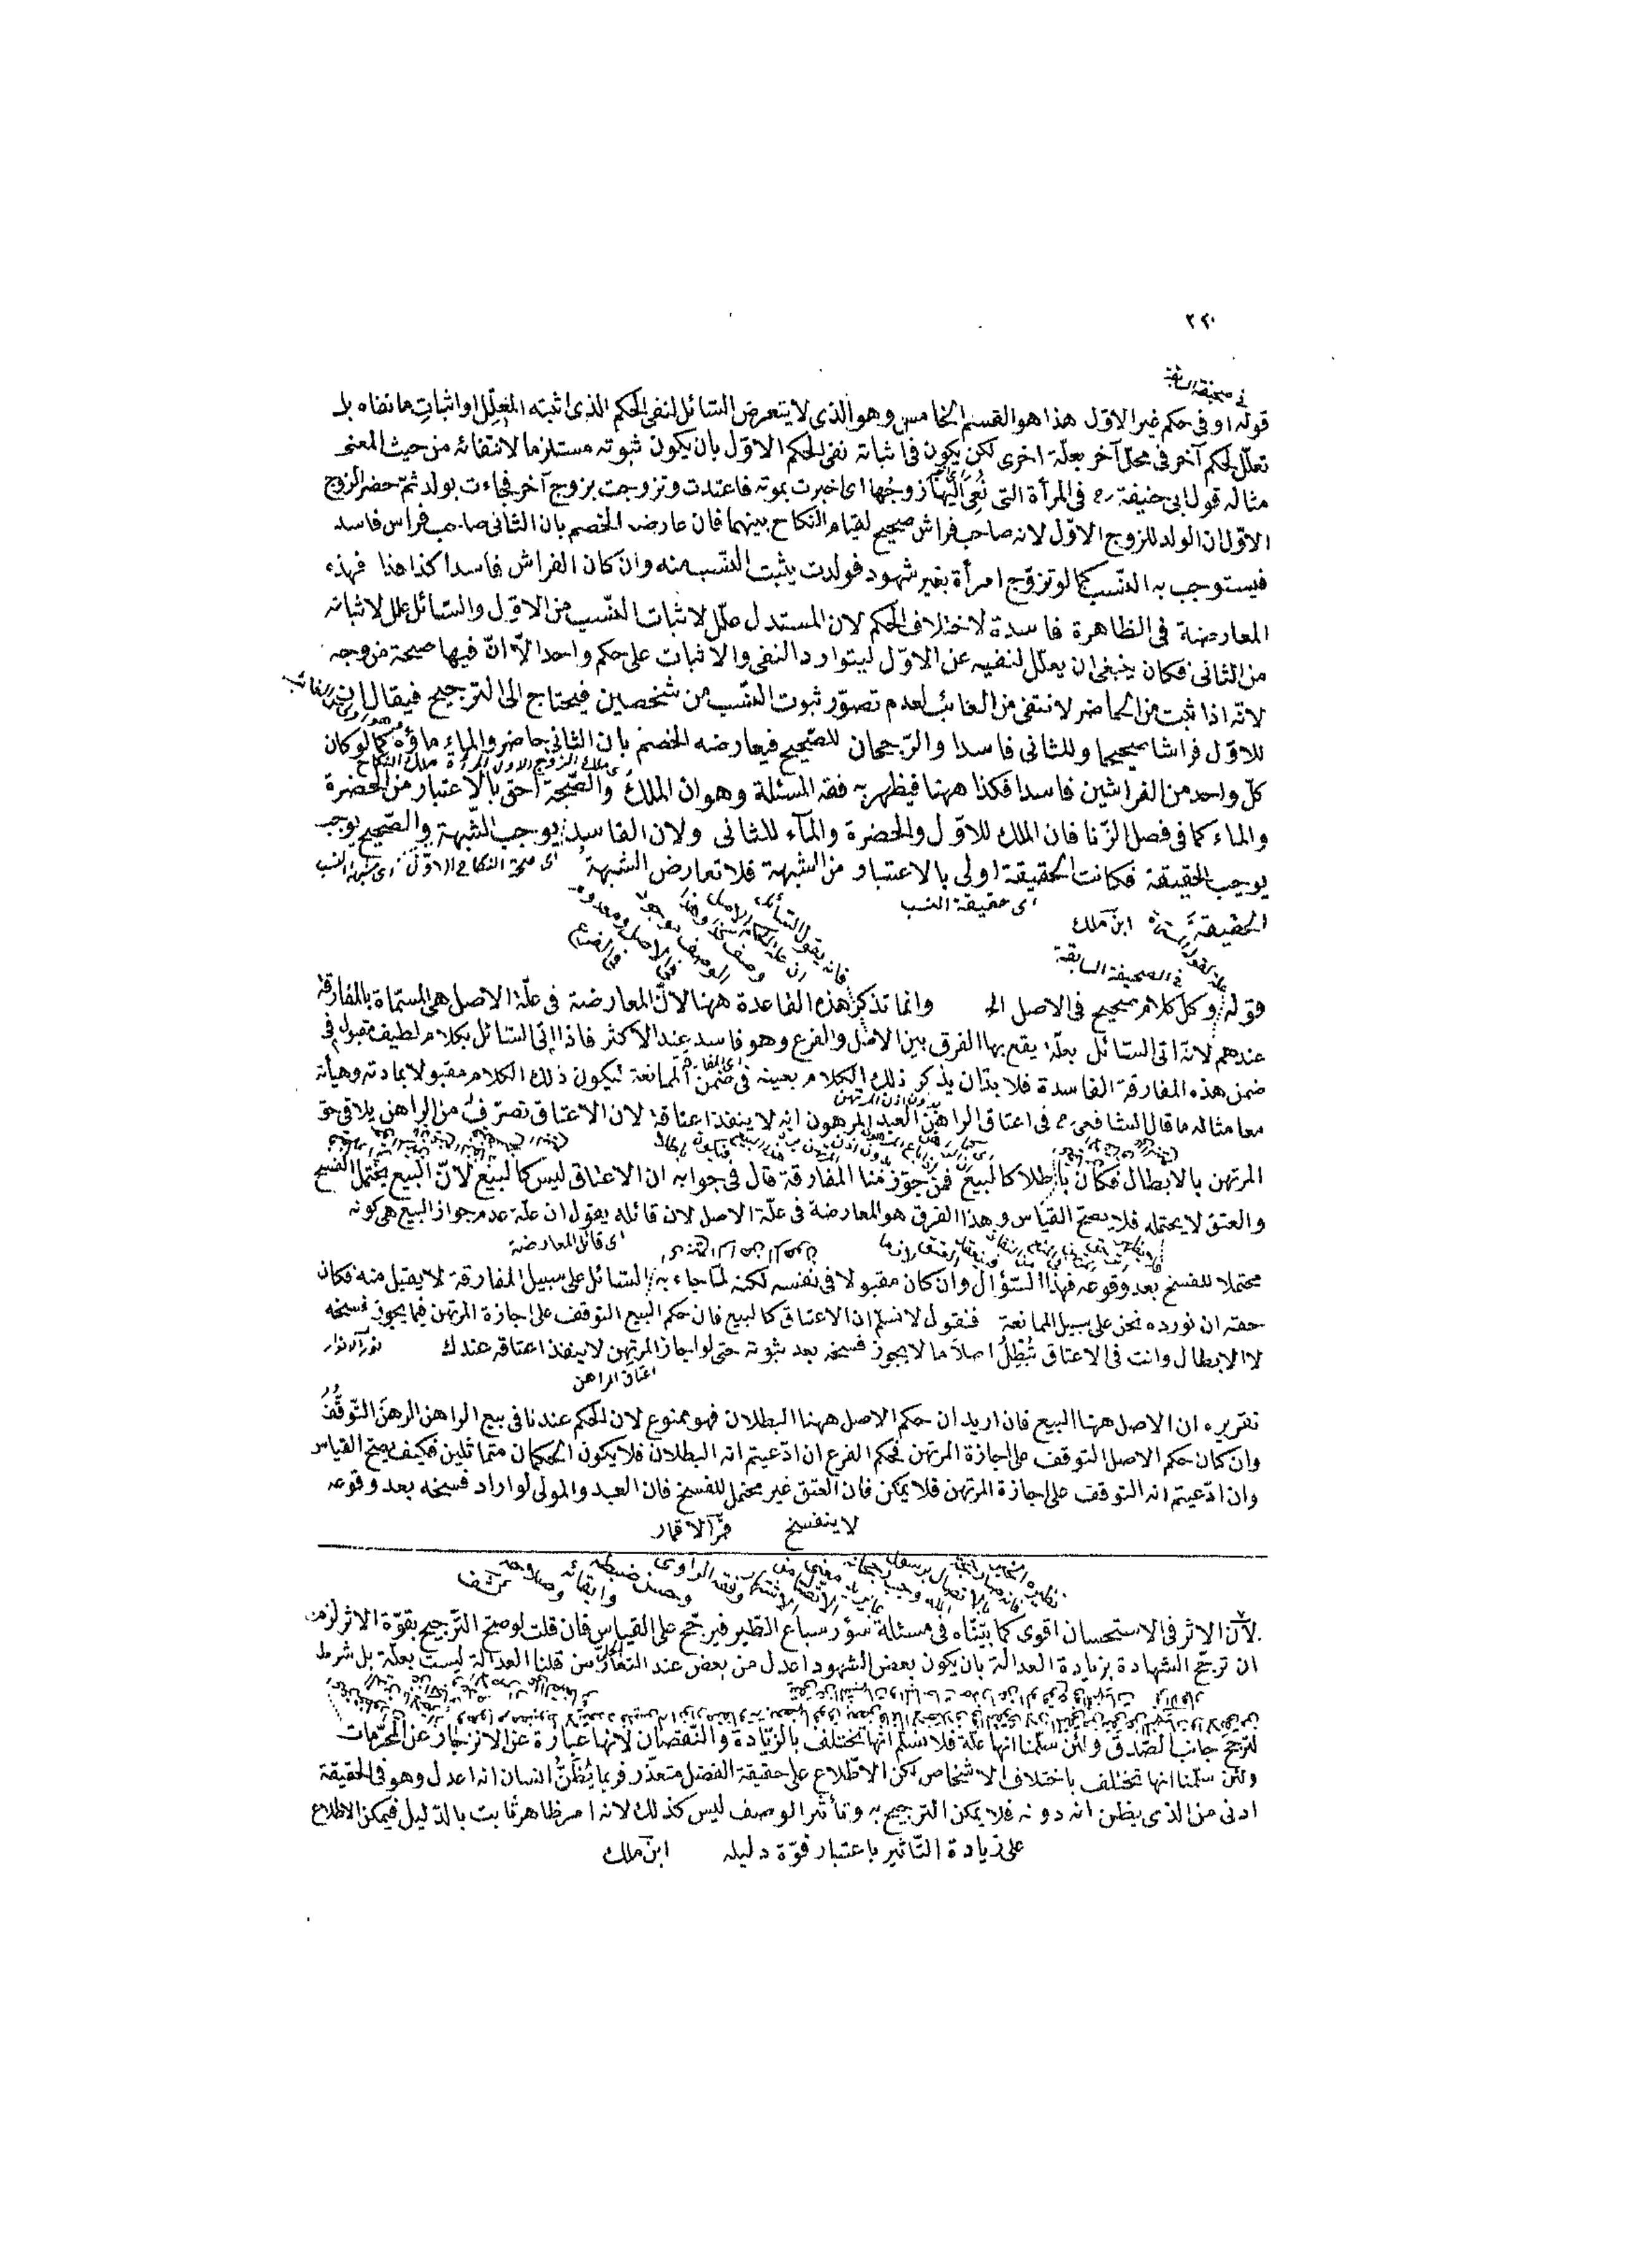 ٢٢٠
في صحيفة السابقة
قوله او فى حكم غير الاول هذا هو القسم الخامس وهو الذى لا يتعرض السّائل لنفى الحكم الذى اثبته المعلّل او اثباتِ ما نفاه بل
تعلّل لحكم آخر فى محلّ آخر بعلّة اخرى لكن يكون فى اثباته نفى الحكم الاوّل بان يكون ثبوته مستلزما لانتفائه من حيث المعنى
مثاله قول ابى حنيفة رح فى المرأة التى نُعِىَ اليها زوجُها اى اخبرت بموته فاعتدت وتزوجت بزوج آخر فجاءت بولد ثمّ حضر الزوج
الاوّل ان الولد للزوج الاوّل لانه صاحب فراش صحيح لقيام النكاح بينهما فان عارضه الخصم بان الثانى صاحب فراس فاسد
فيستوجب به النّسب كما لو تزوّج امرأة بغير شهود فولدت يثبت النسب منه وان كان الفراش فاسدا كذا هذا فهذه
المعارضة فى الظاهرة فاسدة لاختلاف الحكم لان المستدل علّل لاثبات النّسب من الاوّل والسّائل علّل لاثباته
من الثانى فكان ينبغى ان يعلّل لنفيه عن الاوّل ليتوارد النفى والاثبات على حكم واحد الاّ انّ فيها صحة من وجه
لانّه اذا ثبت من الحاضر لانتفى من الغائب لعدم تصوّر ثبوت النسب من شخصين فيحتاج الى الترجيح فيقال ان
للاوّل فراشا صحيحا وللثانى فاسدا والرّجحان للصّحيح فيعارضه الخصم بان الثانى حاضر والماء ماؤه كما لو كان
كلّ واحد من الفراشين فاسدا فكذا ههنا فيظهر به فقه المسئلة وهو ان الملكَ والصّحّة احق بالاعتبار من الحضرة
والماء كما فى فصل الزّنا فان الملك للاوّل والحضرة والمآء للثانى ولان الفاسد يوجب الشّبهة والصّحيح يوجب
يوجب الحقيقة فكانت الحقيقة اولى بالاعتبار من الشبهة فلا تعارض الشبهة اى صحة النكاح فى الاوّل
اى حقيقة النسب
الحقيقةَ ابن ملك
فى الصحيفة السابقة
قوله وكلّ كلام صحيح فى الاصل الخ وانما تذكر هذه القاعدة ههنا لانّ المعارضة فى علّة الاصل هى المسمّاة بالمفارقة
عندهم لانه اتى السّائل بعلّة يقع بها الفرق بين الاصل والفرع وهو فاسد عند الاكثر فاذا اتى السّائل بكلام لطيف مقبول فى
ضمن هذه المفارقة الفاسدة فلا بدّ ان يذكر ذلك الكلام بعينه فى ضمن الممانعة ليكون ذلك الكلام مقبولا بمادته وهيأته
بدون اذن المرتهن
معا مثاله ما قال الشافعى رح فى اعتاق الراهن العبد المرهون انه لا ينفذ اعتاقه لان الاعتاق تصرّف من الراهن يلاقى حق
المرتهن بالابطال فكان باطلا كالبيع فمن جوّز منا المفارقة قال فى جوابه ان الاعتاق ليس كالبيع لانّ البيع يحتمل الفسخ
والعتق لا يحتمله فلا يصحّ القياس وهذا الفرق هو المعارضة فى علّة الاصل لان قائله يقول ان علّة عدم جواز البيع هى كونه
اى قائل المعارضة
محتملا للفسخ بعد وقوعه فهذا السّؤال وان كان مقبولا فى نفسه لكنه لمّا جاء به السّائل على سبيل المفارقة لا يقبل منه فكان
حقه ان نورده نحن على سبيل الممانعة فنقول لا نسلّم ان الاعتاق كالبيع فان حكم البيع التوقف على اجازة المرتهن فيما يجوز فسخه
لا الابطال وانت فى الاعتاق تُبْطِلُ اصلاً ما لا يجوز فسخه بعد ثبوته حتى لو اجاز المرتهن لا ينفذ اعتاقه عندك نور الانوار
اعتاق الراهن
تقريره ان الاصل ههنا البيع فان اريد ان حكم الاصل ههنا البطلان فهو ممنوع لان الحكم عندنا فى بيع الراهن الرهنَ التوقُّفُ
وان كان حكم الاصل التوقف على اجازة المرتهن فحكم الفرع ان ادّعيتم انه البطلان فلا يكون الحكمان متماثلين فكيف يصحّ القياس
وان ادّعيتم انه التوقف على اجازة المرتهن فلا يمكن فان العتق غير محتمل للفسخ فان العبد والمولى لو اراد فسخه بعد وقوعه
لا ينفسخ قمر الاقمار
لأنّ الاثر فى الاستحسان اقوى كما بيّنّاه فى مسئلة سؤر سباع الطّير فيرجّح على القياس فان قلت لو صحّ التّرجيح بقوّة الاثر لزم
ان ترجّح الشهادة بزيادة العدالة بان يكون بعض الشهود اعدل من بعض عند التعارض قلنا العدالة ليست بعلّة بل شرط
لترجّح جانب الصّدق ولئن سلّمنا انها علّة فلا نسلّم انها تختلف بالزّيادة والنّقصان لانها عبارة عن الانزجار عن المحرّمات
ولئن سلّمنا انها تختلف باختلاف الاشخاص لكن الاطّلاع على حقيقة الفضل متعذّر فربما يُظَنُّ انسان انه اعدل وهو فى الحقيقة
ادنى من الذى يظن انه دونه فلا يمكن الترجيح به وتأثّر الوصف ليس كذلك لانه امر ظاهر ثابت بالدّليل فيمكن الاطلاع
على زيادة التّاثير باعتبار قوّة دليله ابن ملك